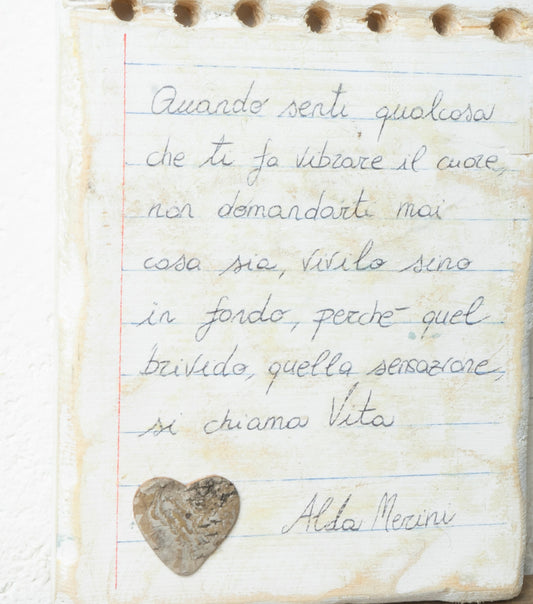 Quando senti qualcosa
che ti fa vibrare il cuore,
non domandarti mai
cosa sia, vivilo sino
in fondo, perché quel
brivido, quella sensazione,
si chiama Vita
Alda Merini